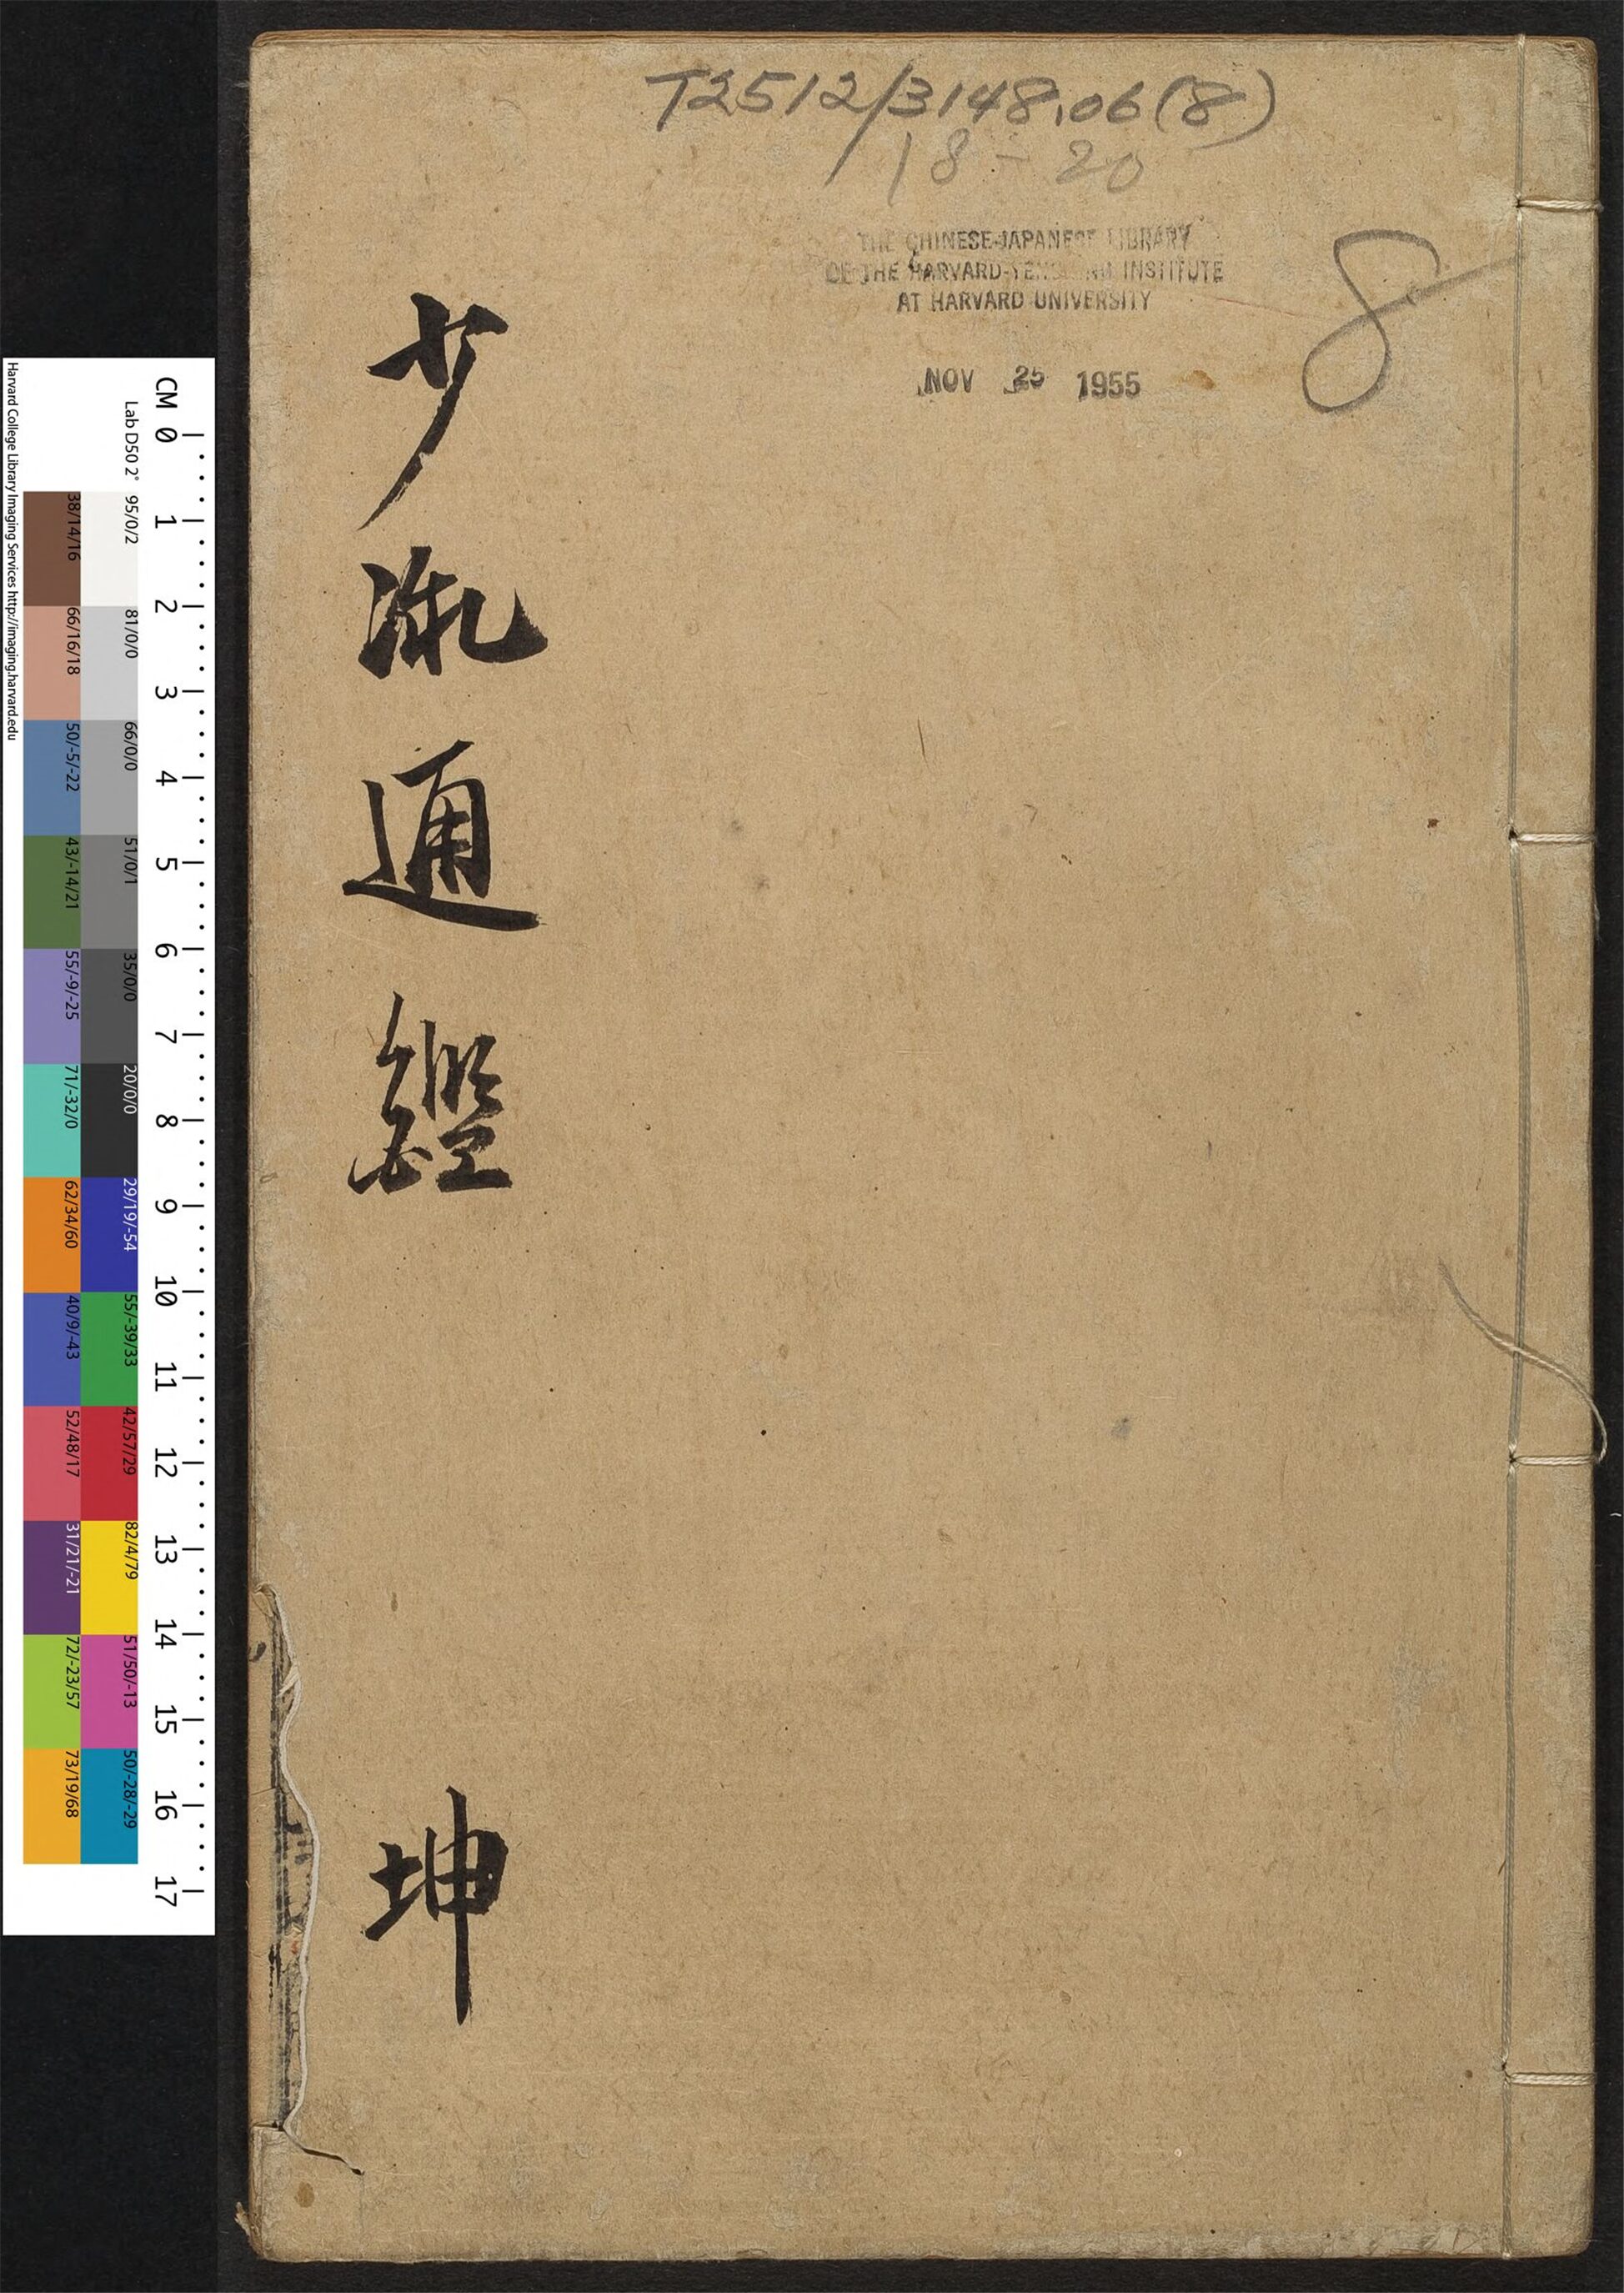 T2512/3148.06(8)
18-20
THE CHINESE-JAPANESE LIBRARY
OF THE HARVARD-YENCHING INSTITUTE
AT HARVARD UNIVERSITY
NOV 25 1955
8
少微通鑑
坤
CM 0 1 2 3 4 5 6 7 8 9 10 11 12 13 14 15 16 17
Lab D50 2° 95/0/2 81/0/0 66/0/0 51/0/1 35/0/0 20/0/0 29/19/-54 55/-39/33 42/57/29 82/4/79 51/50/-13 50/-28/-29
38/14/16 66/16/18 50/-5/-22 43/-14/21 55/-9/-25 71/-32/0 62/34/60 40/9/-43 52/48/17 31/21/-21 72/-23/57 73/19/68
Harvard College Library Imaging Services http://imaging.harvard.edu